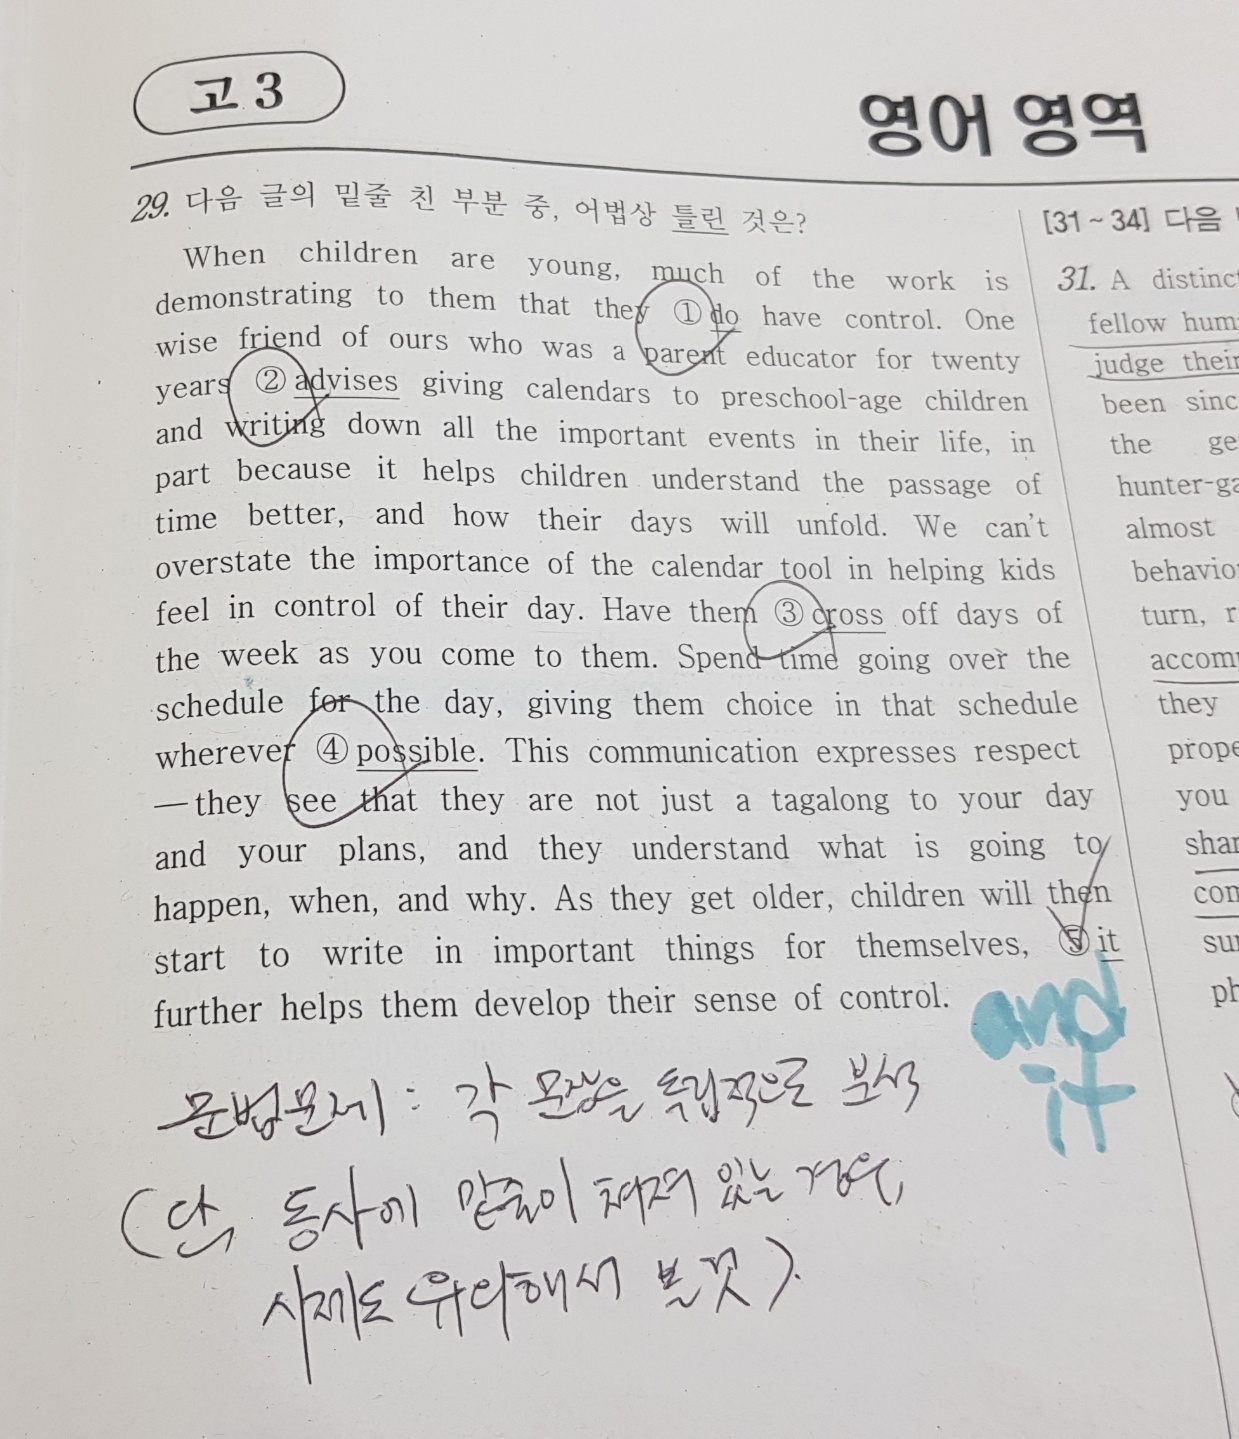 고3
영어 영역
29. 다음 글의 밑줄 친 부분 중, 어법상 틀린 것은?
When children are young, much of the work is
demonstrating to them that they ① do have control. One
wise friend of ours who was a parent educator for twenty
years ② advises giving calendars to preschool-age children
and writing down all the important events in their life, in
part because it helps children understand the passage of
time better, and how their days will unfold. We can't
overstate the importance of the calendar tool in helping kids
feel in control of their day. Have them ③ cross off days of
the week as you come to them. Spend time going over the
schedule for the day, giving them choice in that schedule
wherever ④ possible. This communication expresses respect
—they see that they are not just a tagalong to your day
and your plans, and they understand what is going to
happen, when, and why. As they get older, children will then
start to write in important things for themselves, ⑤ it
further helps them develop their sense of control.
and
it
문법문제 : 각 문장을 독립적으로 분석
(단, 동사에 밑줄이 쳐져 있는 경우,
시제도 유의해서 볼것).
[31~34] 다음
31. A distinct
fellow hum
judge their
been sinc
the ge
hunter-ga
almost
behavio
turn, r
accom
they
prope
you
shar
con
su
ph